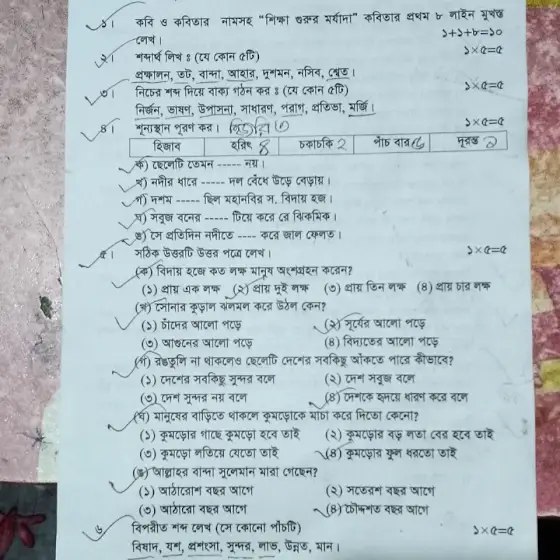 ১। কবি ও কবিতার নামসহ “শিক্ষা গুরুর মর্যাদা” কবিতার প্রথম ৮ লাইন মুখস্ত
লেখ। ১+১+৮=১০
২। শব্দার্থ লিখ ঃ (যে কোন ৫টি) ১×৫=৫
প্রক্ষালন, তট, বান্দা, আহার, দুশমন, নসিব, শ্বেত।
৩। নিচের শব্দ দিয়ে বাক্য গঠন কর ঃ (যে কোন ৫টি) ১×৫=৫
নির্জন, ভাষণ, উপাসনা, সাধারণ, পরাণ, প্রতিভা, মর্জি।
৪। শূন্যস্থান পূরণ কর। ১×৫=৫
হিজরি ৩
হিজাব হরিৎ ৪ চকচকি ২ পাঁচ বার ৫ দুরন্ত ১
ক) ছেলেটি তেমন ----- নয়।
খ) নদীর ধারে ----- দল বেঁধে উড়ে বেড়ায়।
গ) দশম ----- ছিল মহানবির স. বিদায় হজ।
ঘ) সবুজ বনের ----- টিয়ে করে রে ঝিকমিক।
ঙ) সে প্রতিদিন নদীতে ---- করে জাল ফেলত।
৫। সঠিক উত্তরটি উত্তর পত্রে লেখ। ১×৫=৫
(ক) বিদায় হজে কত লক্ষ মানুষ অংশগ্রহন করেন?
(১) প্রায় এক লক্ষ (২) প্রায় দুই লক্ষ (৩) প্রায় তিন লক্ষ (৪) প্রায় চার লক্ষ
(খ) সোনার কুড়াল ঝলমল করে উঠল কেন?
(১) চাঁদের আলো পড়ে (২) সূর্যের আলো পড়ে
(৩) আগুনের আলো পড়ে (৪) বিদ্যুতের আলো পড়ে
(গ) রঙতুলি না থাকলেও ছেলেটি দেশের সবকিছু আঁকতে পারে কীভাবে?
(১) দেশের সবকিছু সুন্দর বলে (২) দেশ সবুজ বলে
(৩) দেশ সুন্দর নয় বলে (৪) দেশকে হৃদয়ে ধারণ করে বলে
(ঘ) মানুষের বাড়িতে থাকলে কুমড়োকে মাচা করে দিতো কেনো?
(১) কুমড়োর গাছে কুমড়ো হবে তাই (২) কুমড়োর বড় লতা বের হবে তাই
(৩) কুমড়ো লতিয়ে যেতো তাই (৪) কুমড়োর ফুল ধরতো তাই
(ঙ) আল্লাহর বান্দা সুলেমান মারা গেছেন?
(১) আঠারোশ বছর আগে (২) সতেরশ বছর আগে
(৩) আঠারো বছর আগে (৪) চৌদ্দশত বছর আগে
৬ বিপরীত শব্দ লেখ (সে কোনো পাঁচটি) ১×৫=৫
বিষাদ, যশ, প্রশংসা, সুন্দর, লাভ, উন্নত, মান।